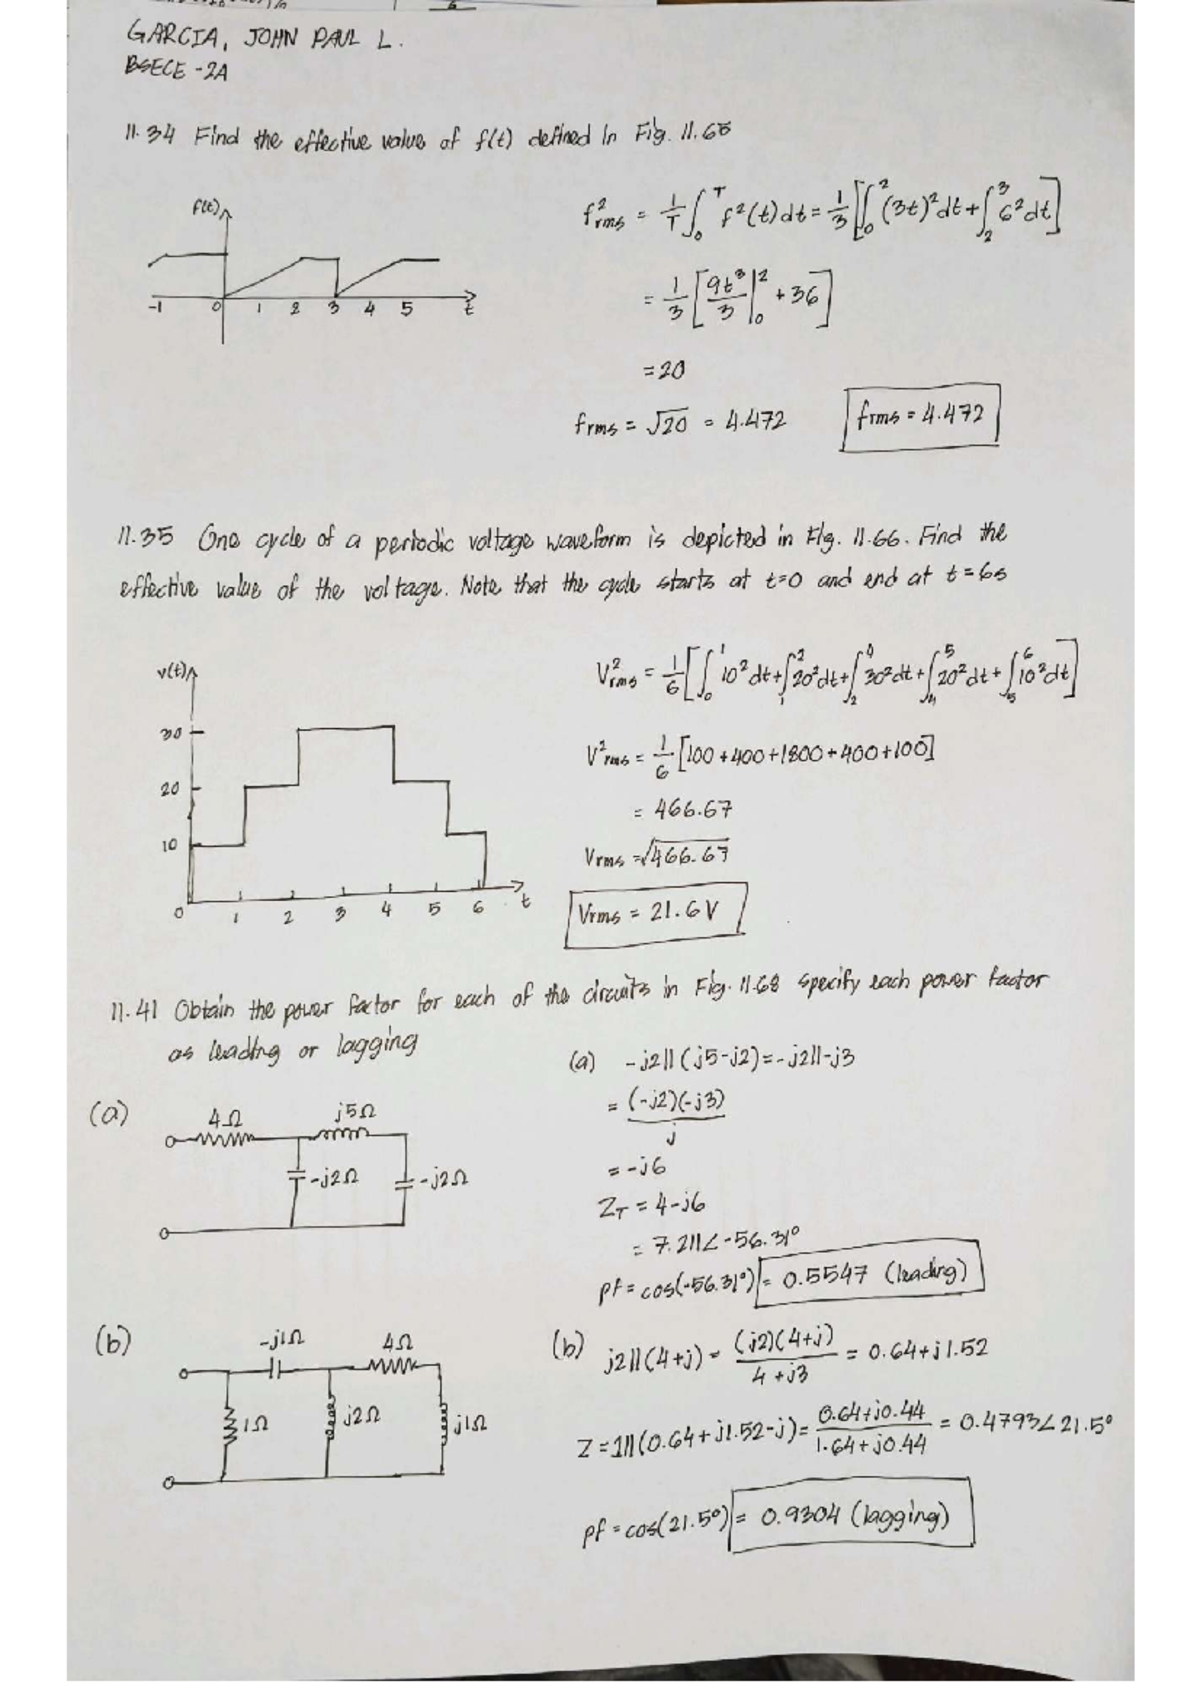 GARCIA, JOHN PAUL L.
BSECE -2A
11.34 Find the effective value of f(t) defined in Fig. 11.65
f(t)
-1 0 1 2 3 4 5 t
f²rms = 1/T ∫₀ᵀ f²(t)dt = 1/3 [∫₀² (3t)²dt + ∫₂³ 6²dt]
= 1/3 [9t³/3 |₀² + 36]
= 20
frms = √20 = 4.472
frms = 4.472
11.35 One cycle of a periodic voltage waveform is depicted in Fig. 11.66. Find the
effective value of the voltage. Note that the cycle starts at t=0 and end at t=6s
v(t)
30
20
10
0 1 2 3 4 5 6 t
V²rms = 1/6 [∫₀¹ 10²dt + ∫₁² 20²dt + ∫₂⁴ 30²dt + ∫₄⁵ 20²dt + ∫₅⁶ 10²dt]
V²rms = 1/6 [100+400+1800+400+100]
= 466.67
Vrms = √466.67
Vrms = 21.6 V
11.41 Obtain the power factor for each of the circuits in Fig. 11.68 specify each power factor
as leading or lagging
(a)
4Ω j5Ω
-j2Ω -j2Ω
(a) -j2||(j5-j2)=-j2||-j3
= (-j2)(-j3)/j
= -j6
Z_T = 4-j6
= 7.211∠-56.31°
pf = cos(-56.31°) = 0.5547 (leading)
(b)
-j1Ω 4Ω
1Ω j2Ω j1Ω
(b) j2||(4+j) = (j2)(4+j)/4+j3 = 0.64+j1.52
Z = 1||(0.64+j1.52-j) = 0.64+j0.44/1.64+j0.44 = 0.4793∠21.5°
pf = cos(21.5°) = 0.9304 (lagging)